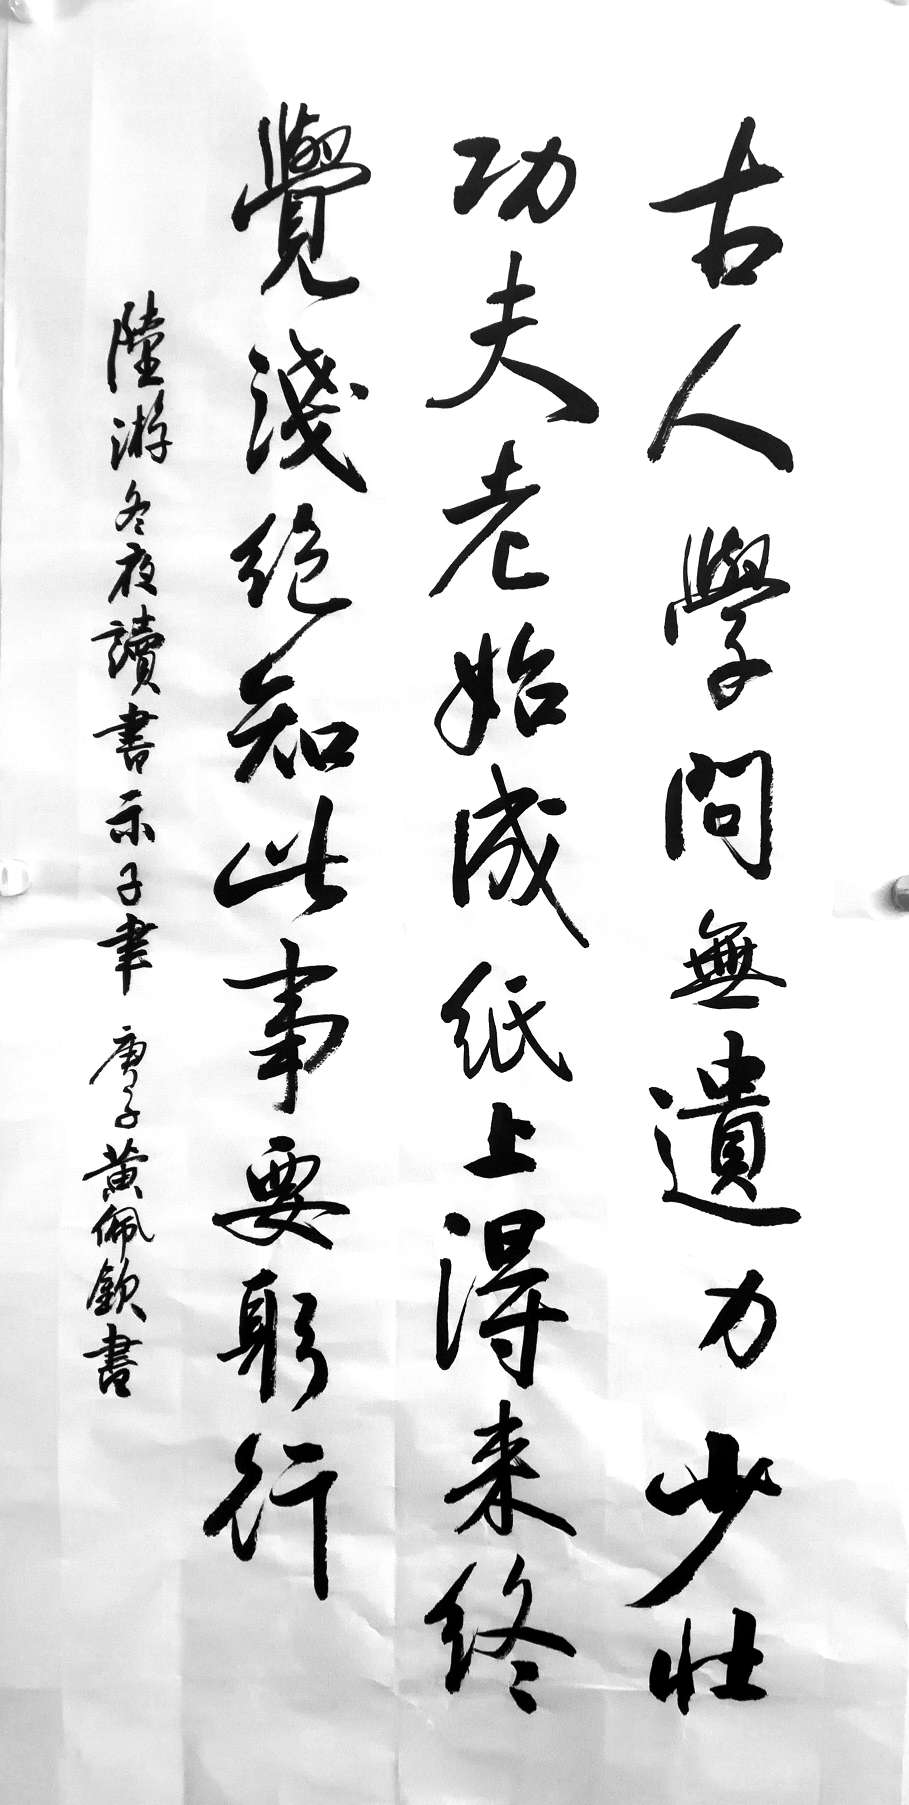 古人學問無遺力少壯
功夫老始成紙上得来終
覺淺絕知此事要躬行
陸游冬夜讀書示子聿 庚子黃佩欽書